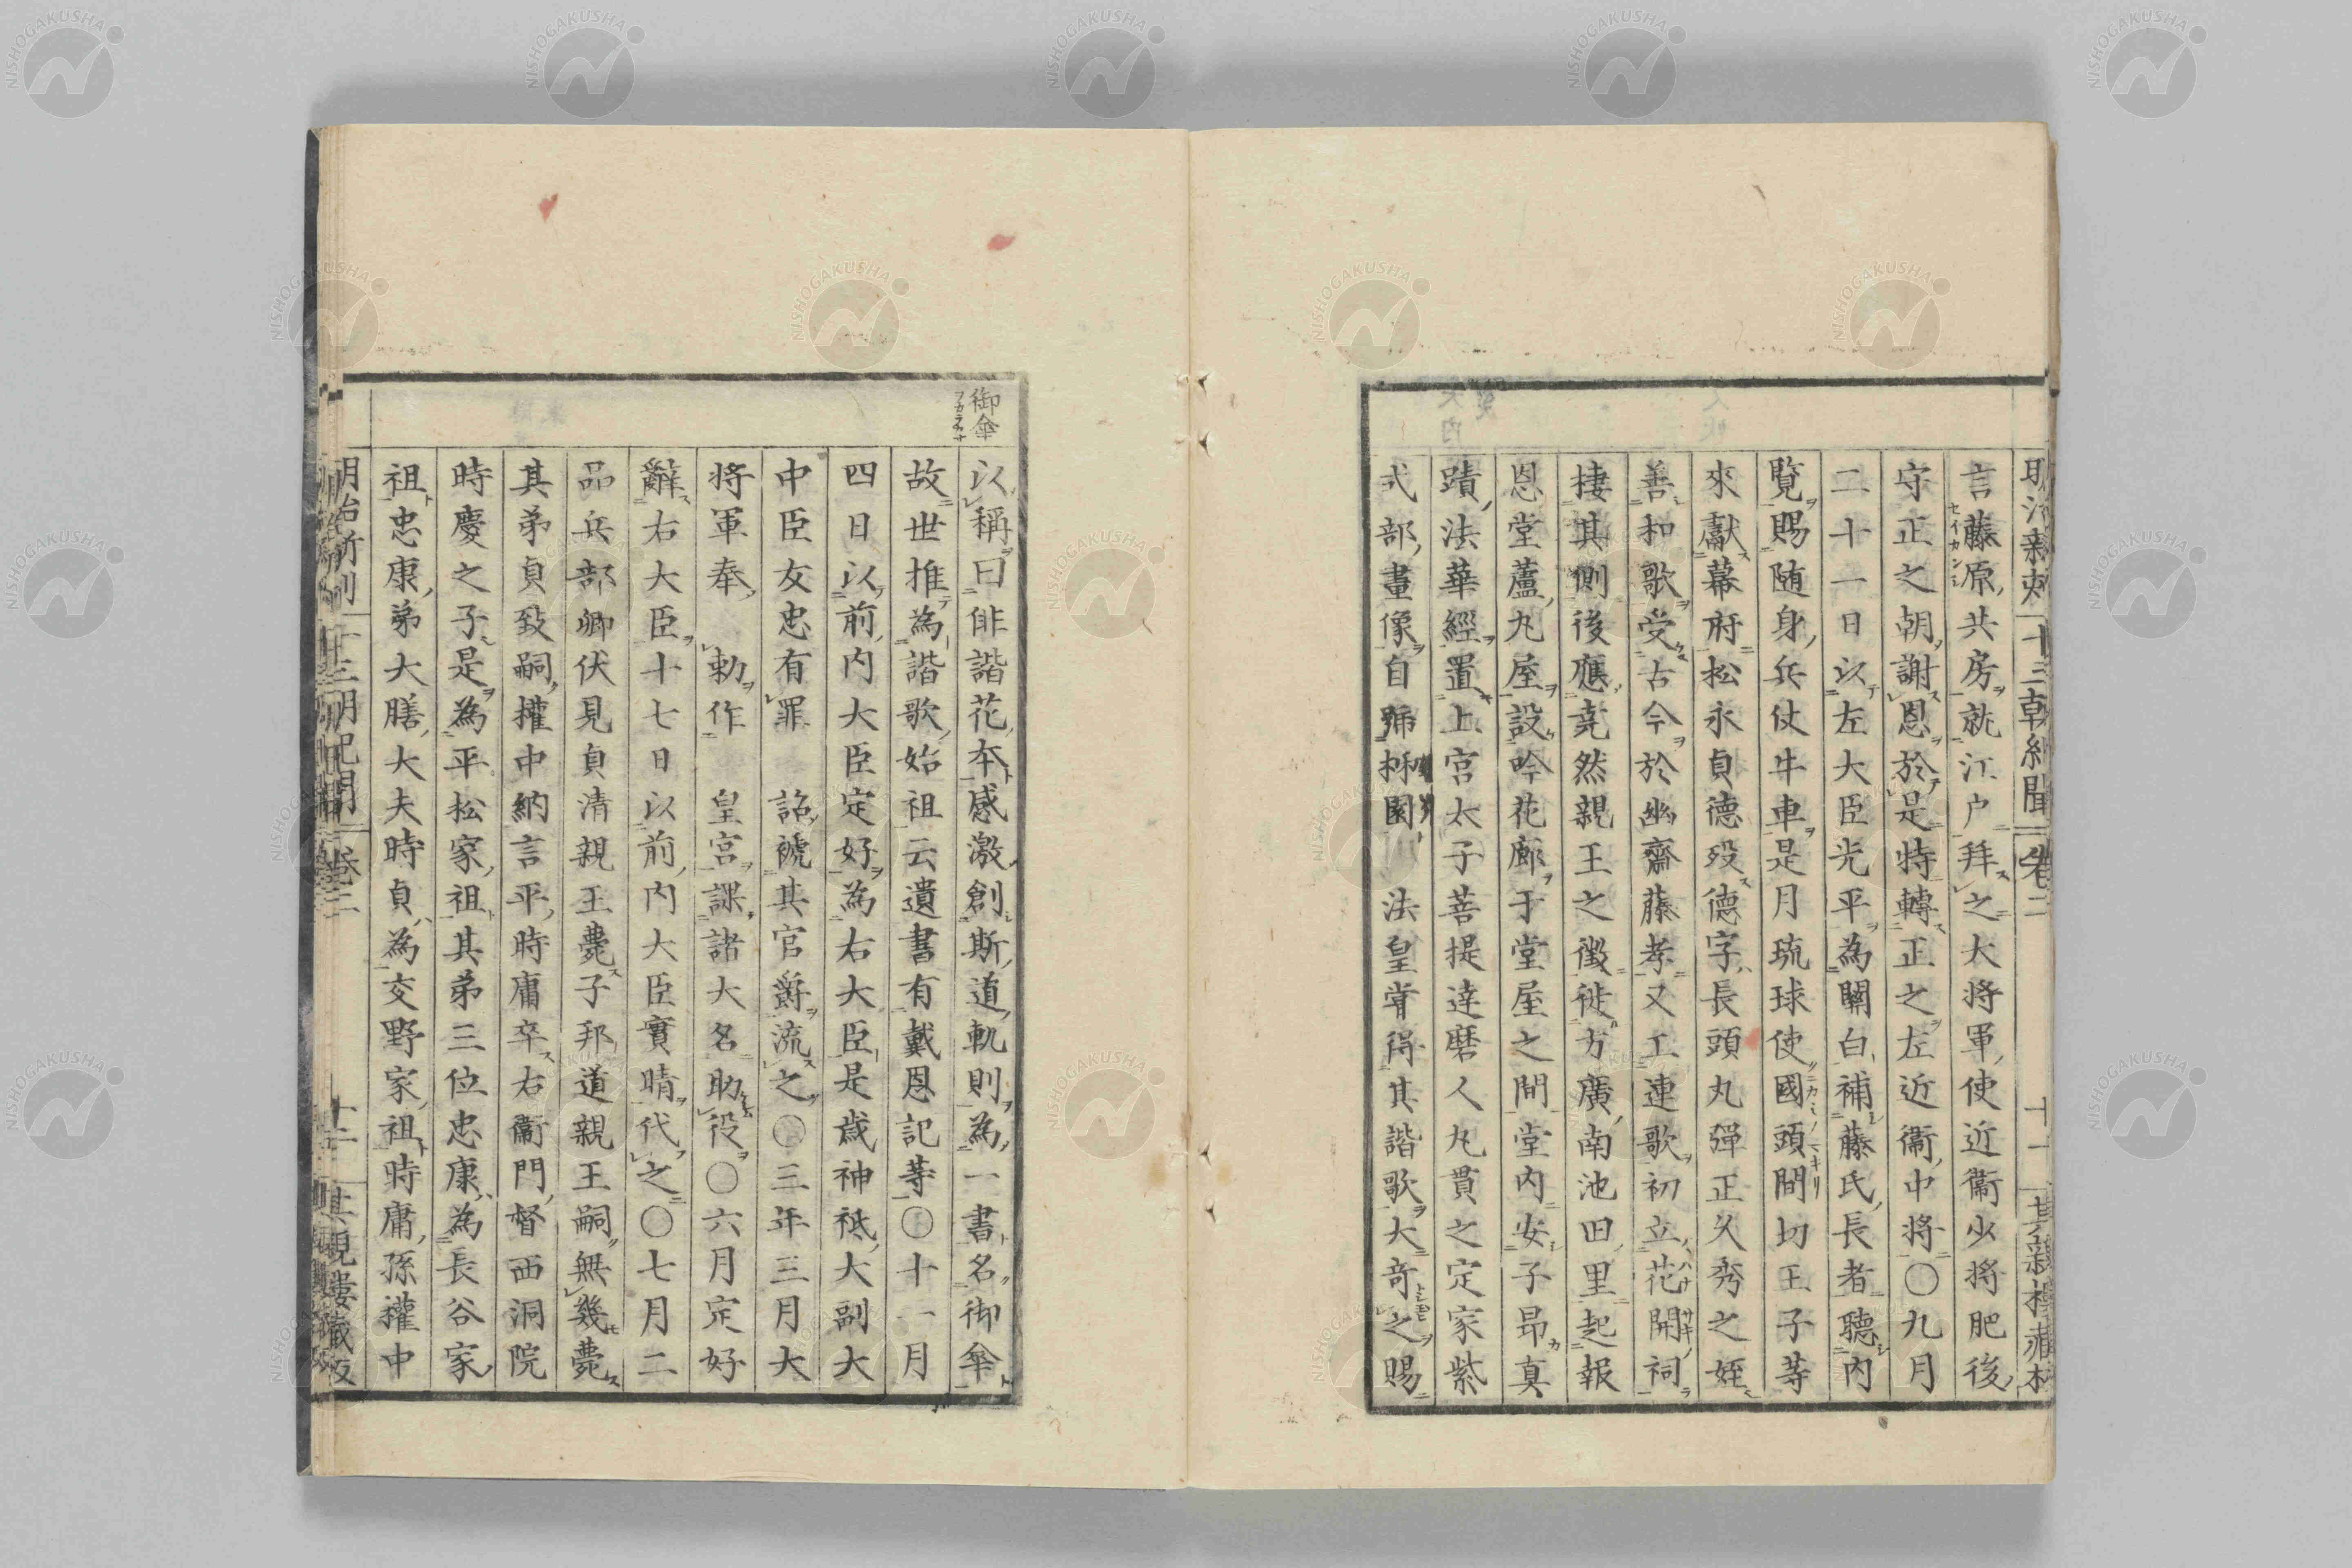 明治新刻 十三朝紀聞 卷二 十一
言藤原共房就江户拜之大將軍使近衞少將肥後
守正之朝謝恩於是特轉正之左近衞中將〇九月
二十一日以左大臣光平為關白補藤氏長者聽内
覽賜随身兵仗牛車是月琉球使國頭間切王子等
來獻幕府松永貞德歿德字長頭丸彈正久秀之姪
善和歌受古今於幽齋藤孝又工連歌初立花開祠
捿其側後應尭然親王之徵徙方廣南池田里起報
恩堂蘆丸屋設吟花廊于堂屋之間堂内安子昂真
蹟法華經置上宮太子菩提達磨人丸貫之定家紫
式部畫像自號柹園 法皇甞得其諧歌大竒之賜
御傘
以稱曰俳諧花夲感激創斯道軌則為一書名御傘
故世推為諧歌始祖云遺書有戴恩記等〇十一月
四日以前内大臣定好為右大臣是歳神祇大副大
中臣友忠有罪 詔褫其官爵流之〇三年三月大
將軍奉 勅作 皇宮課諸大名助役〇六月定好
辭右大臣十七日以前内大臣實晴代之〇七月二
品兵部卿伏見貞清親王薨子邦道親王嗣無幾薨
其弟貞致嗣權中納言平時庸卒右衞門督西洞院
時慶之子是為平松家祖其弟三位忠康為長谷家
祖忠康弟大膳大夫時貞為交野家祖時庸孫權中
明治新刻 十三朝紀聞 卷二 十二